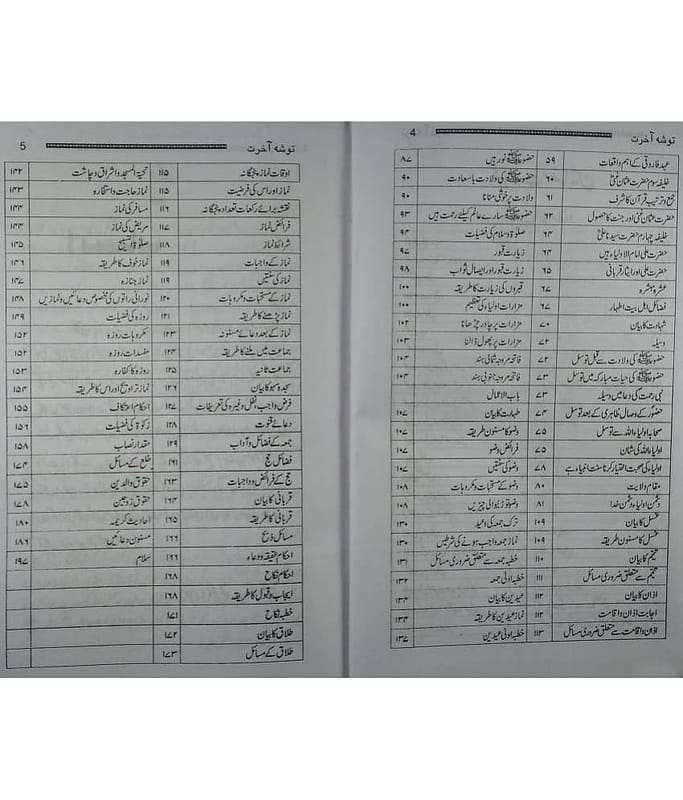 توشہ آخرت 4
عہد فاروقی کے اہم واقعات ۵۹ حضور ﷺ نور ہیں ۸۷
خلیفہ سوم حضرت عثمان غنیؓ ۶۰ حضور ﷺ کی ولادت باسعادت ۹۰
جمع و ترتیب قرآن کا شرف ۶۱ ولادت پر خوشی منانا ۹۰
حضرت عثمان غنی اور جنت کا حصول ۶۲ حضور ﷺ سارے عالم کیلئے رحمت ہیں ۹۳
خلیفہ چہارم حضرت سیدنا علیؓ ۶۴ صلوٰۃ وسلام کی فضیلت ۹۴
حضرت علی امام الاولیاء ہیں ۶۴ زیارت قبور ۹۷
حضرت علی اور ایثار و قربانی ۶۵ زیارت قبور اور ایصال ثواب ۹۸
عشرہ مبشرہ ۶۷ قبروں کی زیارت کا طریقہ ۱۰۰
فضائل اہل بیت اطہار ۶۷ مزارات اولیاء کی تعظیم ۱۰۰
شہادت کا بیان ۷۰ مزارات پر چادر چڑھانا ۱۰۲
وسیلہ ۷۲ مزارات پر پھول ڈالنا ۱۰۳
حضور ﷺ کی ولادت سے قبل توسل ۷۲ فاتحہ مروجہ شمالی ہند ۱۰۴
حضور ﷺ کی حیات مبارکہ میں توسل ۷۳ فاتحہ مروجہ جنوبی ہند ۱۰۴
نبی رحمت کی دعا میں وسیلہ ۷۳ باب الاعمال
حضورؐ کے وصال ظاہری کے بعد توسل ۷۴ طہارت کا بیان ۱۰۷
صحابہ اولیاء اللہ سے توسل ۷۵ وضو کا مسنون طریقہ ۱۰۷
اولیاء اللہ کی شان ۷۵ فرائض وضو ۱۰۷
اولیاء کی صحبت اختیار کرنا سنت انبیاء ہے ۷۸ وضو کی سنتیں ۱۰۷
مقام ولایت ۸۰ وضو کے مستحبات و مکروہات ۱۰۸
دشمن اولیاء دشمن خدا ۸۱ وضو توڑنیوالی چیزیں ۱۰۸
غسل کا بیان ۱۰۹ ترک جمعہ کی وعید ۱۳۰
غسل کا مسنون طریقہ ۱۰۹ نماز جمعہ واجب ہونے کی شرطیں ۱۳۰
تیمم کا بیان ۱۱۰ خطبہ جمعہ سے متعلق ضروری مسائل ۱۳۱
تیمم سے متعلق ضروری مسائل ۱۱۱ خطبہ اولیٰ جمعہ ۱۳۲
اذان کا بیان ۱۱۲ عیدین کا بیان ۱۳۴
اجابت اذان و اقامت ۱۱۲ نماز عیدین کا طریقہ ۱۳۴
اذان و اقامت سے متعلق ضروری مسائل ۱۱۳ خطبہ اولیٰ عیدین ۱۳۷
توشہ آخرت 5
اوقات نماز پنجگانہ ۱۱۵ تحیۃ المسجد و اشراق و چاشت ۱۴۲
نماز اور اس کی فرضیت ۱۱۵ نماز حاجت و استخارہ ۱۴۳
نقشہ برائے رکعات تعداد پنجگانہ ۱۱۶ مسافر کی نماز ۱۴۴
فرائض نماز ۱۱۷ مریض کی نماز ۱۴۴
شرائط نماز ۱۱۸ صلوٰۃ التسبیح ۱۴۵
نماز کے واجبات ۱۱۹ نماز خوف کا طریقہ ۱۴۶
نماز کی سنتیں ۱۱۹ نماز جنازہ ۱۴۷
نماز کے مستحبات و مکروہات ۱۲۰ نورانی راتوں کی مخصوص دعائیں و نمازیں ۱۴۸
نماز پڑھنے کا طریقہ ۱۲۱ روزہ کی فضیلت ۱۴۹
نماز کے بعد دعائے مسنونہ ۱۲۳ مکروہات روزہ ۱۵۲
جماعت میں ملنے کا طریقہ ۱۲۴ مفسدات روزہ ۱۵۲
جماعت ثانیہ ۱۲۵ روزہ کا کفارہ ۱۵۳
سجدہ سہو کا بیان ۱۲۶ نماز تراویح اور اس کا طریقہ ۱۵۴
فرض واجب نفل وغیرہ کی تعریفات ۱۲۷ احکام اعتکاف ۱۵۵
دعائے قنوت ۱۲۸ زکوٰۃ کی فضیلت ۱۵۶
جمعہ کے فضائل و آداب ۱۲۹ مقدار نصاب ۱۵۸
فضائل حج ۱۶۱ خلع کے مسائل ۱۷۴
حج کے فرائض و واجبات ۱۶۳ حقوق والدین ۱۷۵
قربانی کا بیان ۱۶۴ حقوق زوجین ۱۷۸
قربانی کا طریقہ ۱۶۵ احادیث کریمہ ۱۸۰
مسائل ذبح ۱۶۶ مسنون دعائیں ۱۸۶
احکام عقیقہ و دعاء ۱۶۶ سلام ۱۹۷
احکام نکاح ۱۶۸
ایجاب و قبول کا طریقہ ۱۶۸
خطبہ نکاح ۱۷۱
طلاق کا بیان ۱۷۲
طلاق کے مسائل ۱۷۳